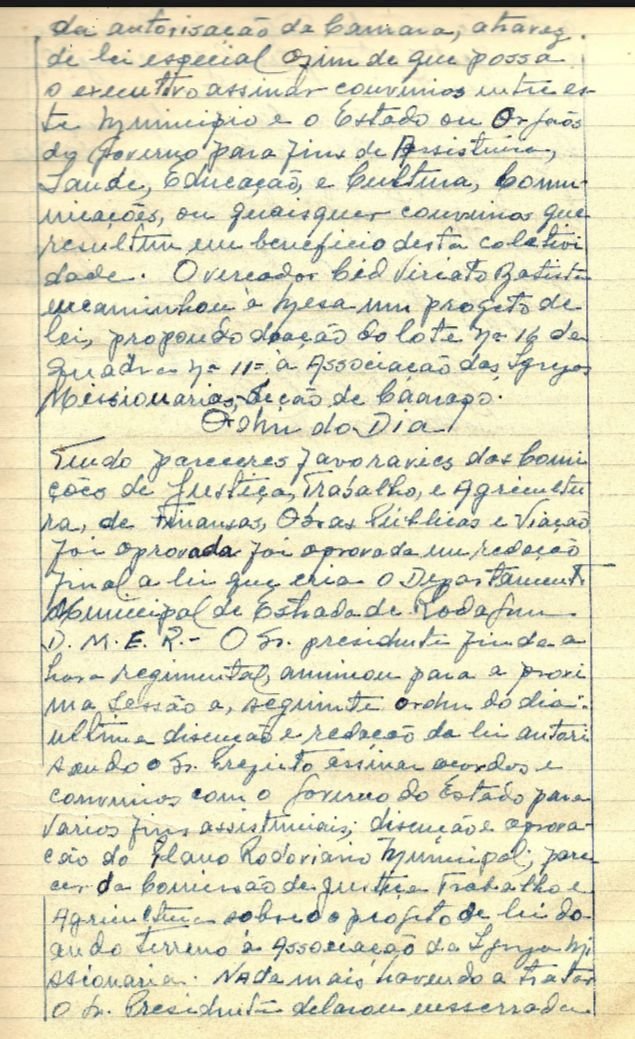 da autorisação da Camara, atravez
de lei especial afim de que possa
o executivo assinar convinios entre es-
te Municipio e o Estado ou Orgãos
do Governo para fins de Assistencia,
Saude, Educação, e Cultura, Comu-
nicações, ou quaisquer convinios que
resultem em beneficio desta coletivi
dade. O vereador Cid Viriato Batista
encaminhou à Mesa um projeto de
lei, propondo doação do lote nº 16 da
quadra nº 11= à Associação das Igrejas
Missionarias, Seção de
Ordem do Dia!
Tendo pareceres favoraveis das Comi
ções de Justiça, Trabalho, e Agricultu
ra, de Finansas, Obras Públicas e Viação
foi aprovada foi aprovada em redação
final a lei que cria o Departamento
Municipal de Estrada de Rodagem.
D. M. E. R. - O Sr. presidente finda a
hora regimental, anunciou para a proxi
ma Sessão a, seguinte ordem do dia:
ultima discução e redação da lei autori
sando o Sr. Prefeito assinar acordos e
convinios com o Governo do Estado para
varios fins assistenciais; discução e aprova-
ção do Plano Rodoviario Municipal; pare
cer da Comissão de Justiça Trabalho e
Agricultura sobre o projeto de lei do-
ando terreno à Associação da Igreja Mi
ssionaria. Nada mais havendo a tratar
O Sr. Presidente declarou ensserrada